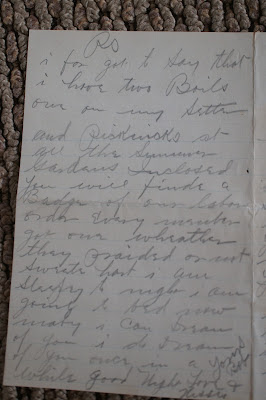 PS
i for got to say that
i have two Boils
one on my sitter
and Picknicks at
all the Summer
Gardens Inclosed
you will finde a
Badge of our labor
order Every member
got one wheather
they Praided or not
Sweate hart i am
Sleepy to night i am
going to bed now
mary i can Dream
of you i do Dream
of you once in a
while Good Night Love &
Kisses